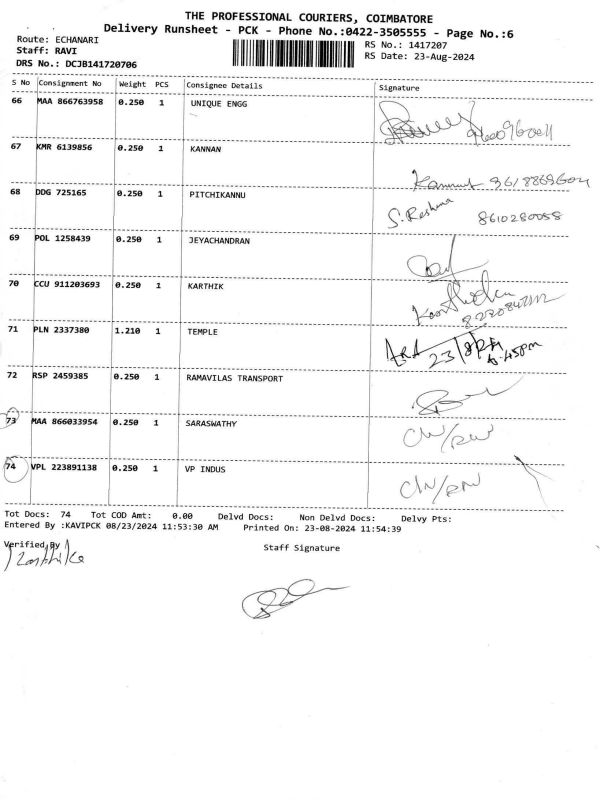 THE PROFESSIONAL COURIERS, COIMBATORE
Delivery Runsheet - PCK - Phone No.:0422-3505555 - Page No.:6
Route: ECHANARI
RS No.: 1417207
Staff: RAVI
RS Date: 23-Aug-2024
DRS No.: DCJB141720706
S No Consignment No Weight PCS Consignee Details Signature
66 MAA 866763958 0.250 1 UNIQUE ENGG
67 KMR 6139856 0.250 1 KANNAN
68 DDG 725165 0.250 1 PITCHIKANNU S. Reshma 8610280058
69 POL 1258439 0.250 1 JEYACHANDRAN
70 CCU 911203693 0.250 1 KARTHIK
71 PLN 2337380 1.210 1 TEMPLE
72 RSP 2459385 0.250 1 RAMAVILAS TRANSPORT
73 MAA 866033954 0.250 1 SARASWATHY
74 VPL 223891138 0.250 1 VP INDUS
Tot Docs: 74 Tot COD Amt: 0.00 Delvd Docs: Non Delvd Docs: Delvy Pts:
Entered By :KAVIPCK 08/23/2024 11:53:30 AM Printed On: 23-08-2024 11:54:39
Verified By
Staff Signature